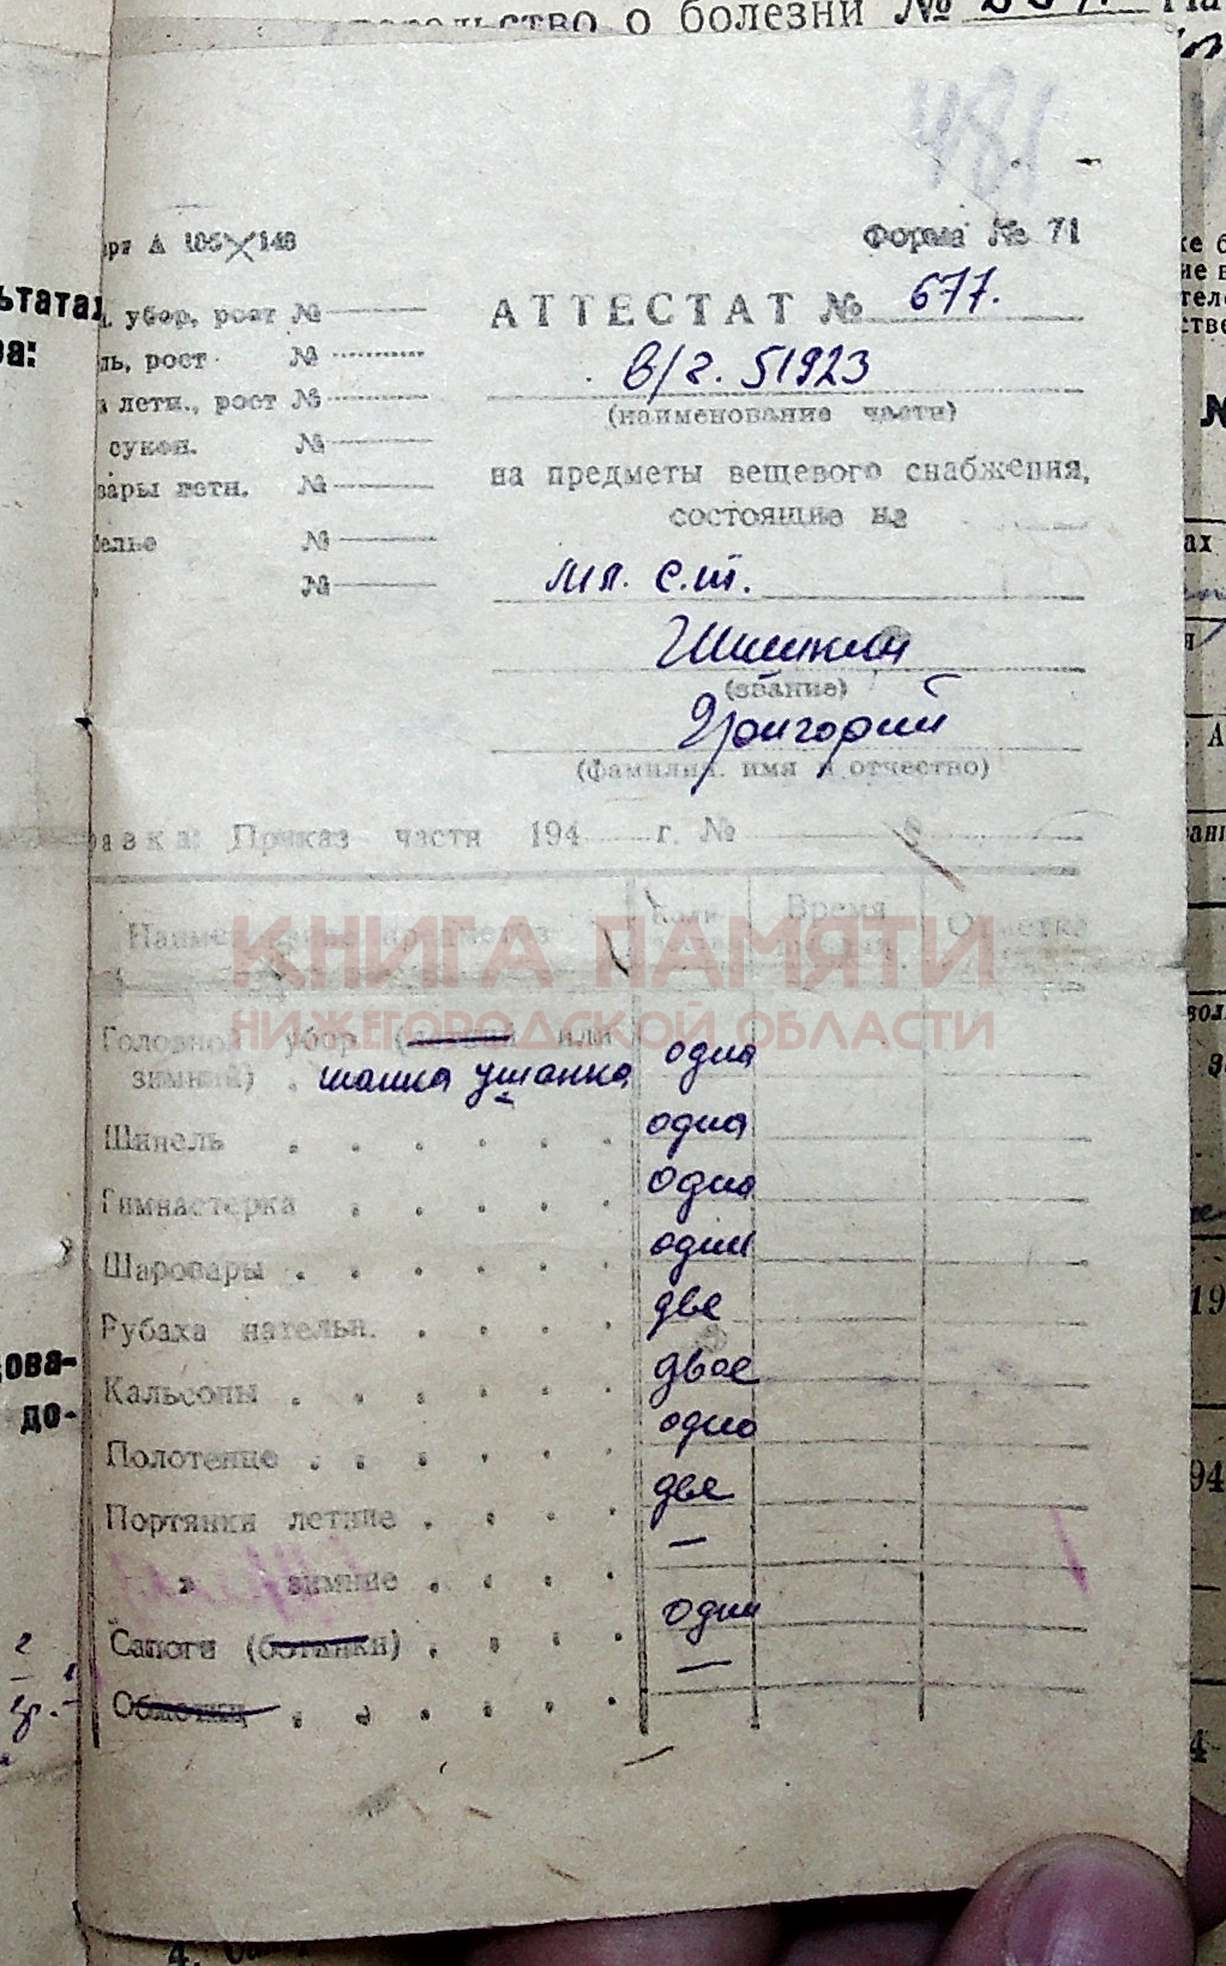 о болезни №
481
А 105×148
Форма № 71
убор, рост №
АТТЕСТАТ № 677.
рост №
в/г. 51923
(наименование части)
летн., рост №
сукон. №
на предметы вещевого снабжения,
состоящие на
летн. №
№
№
мл. с.т.
Шишкин
(звание)
Григорий
(фамилия, имя и отчество)
Приказ части 194 г. №
Время
КНИГА ПАМЯТИ
НИЖЕГОРОДСКОЙ ОБЛАСТИ
Головной убор (летний или
зимний) . шапка ушанка одна
Шинель одна
Гимнастерка одна
Шаровары одни
Рубаха нательн. две
Кальсоны двое
Полотенце одно
Портянки летние две
" зимние —
Сапоги (ботинки) одни
Обмотки —